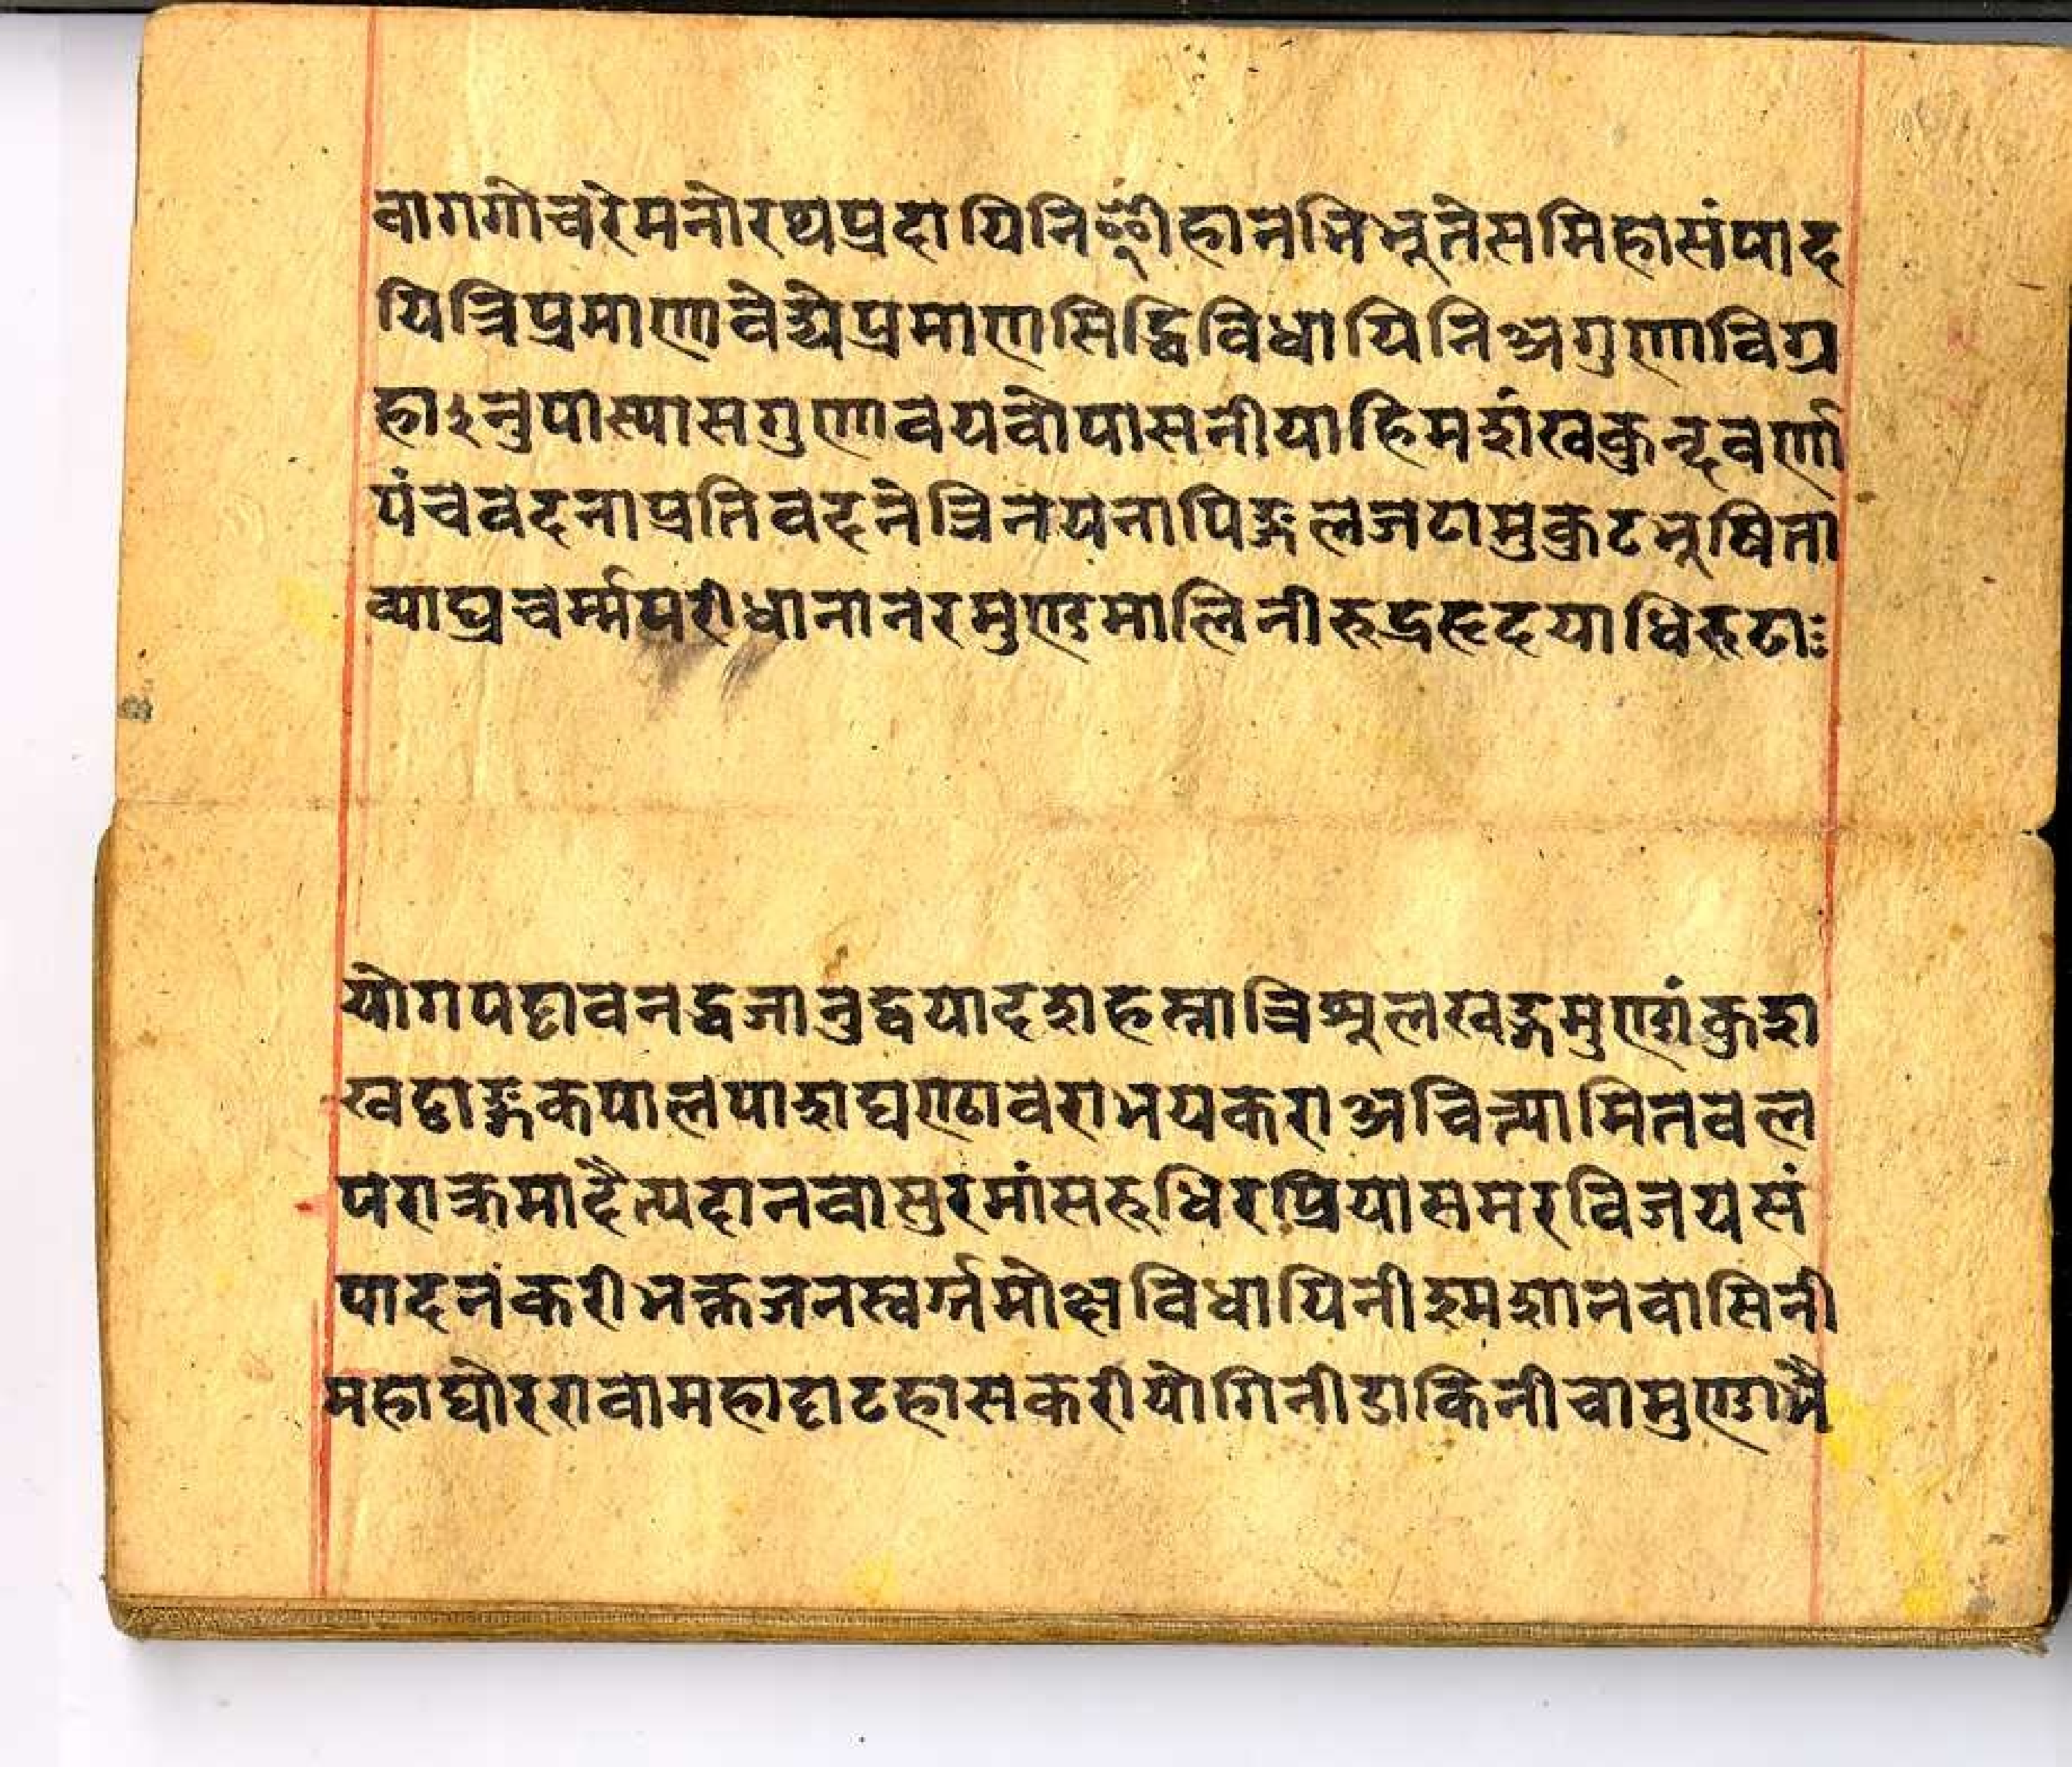 वागगोचरेमनोरथप्रदायिनिॐीहानभिभूतेसमिहासंपाद
यित्रिप्रमाणावेद्येप्रमाणसिद्धिविधायिनिअगुणाविग्र
हाऽनुपास्यासगुणावयवोपासनीयाहिमशंखकुन्दवर्णा
पंचवदनाप्रतिवदनेत्रिनयनापिङ्गलजटामुकुटभूषिता
व्याघ्रचर्म्मपरीधानानरमुण्डमालिनीरुद्रहृदयाधिरुढाः
योगपट्टावनद्धजानुद्वयादशहस्तात्रिशूलखड्गमुण्डांकुश
खट्वाङ्गकपालपाशघण्टावराभयकराअचिन्त्यामितवल
पराक्रमादैत्यदानवासुरमांसरुधिरप्रियासमरविजयसं
पादनंकरीभक्तजनस्वर्ग्गमोक्षविधायिनीश्मशानवासिनी
महाघोररावामहाट्टाटहासकरीयोगिनीडाकिनीचामुण्डाभै